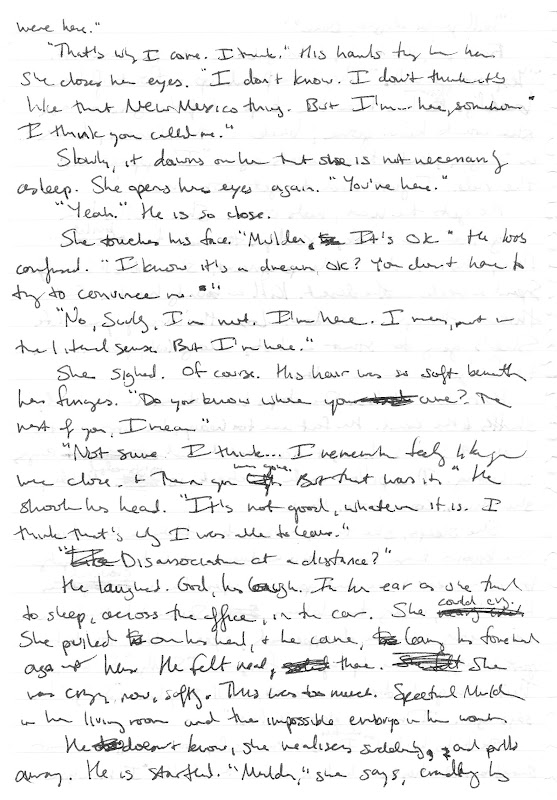 were here."
"That's why I came. I think." His hands try her hair.
She closes her eyes. "I don't know. I don't think it's
like that New Mexico thing. But I'm... here, somehow."
I think you called me."
Slowly, it dawns on her that she is not necessarily
asleep. She opens her eyes again. "You're here."
"Yeah." He is so close.
She touches his face. "Mulder, It's OK." He looks
confused. "I know it's a dream, OK? You don't have to
try to convince me."
"No, Scully, I'm not. I'm here. I mean, not in
the literal sense. But I'm here."
She sighed. Of course. His hair was so soft beneath
her fingers. "Do you know where you are? The
rest of you, I mean."
"Not sure. I think... I remember feeling like you
were close. & Then you were gone. But that was it." He
shook his head. "It's not good, whatever it is. I
think that's why I was able to leave."
"Disassociation at a distance?"
He laughed. God, his laugh. In her ear as she tried
to sleep, across the office, in the car. She could cry.
She pulled on his head, & he came, his forehead
against hers. He felt real, there. She
was crying, now, softly. This was too much. Spectral Mulder
in her living room and the impossible embryo in her womb.
He doesn't know, she realises suddenly, and pulls
away. He is startled. "Mulder," she says,